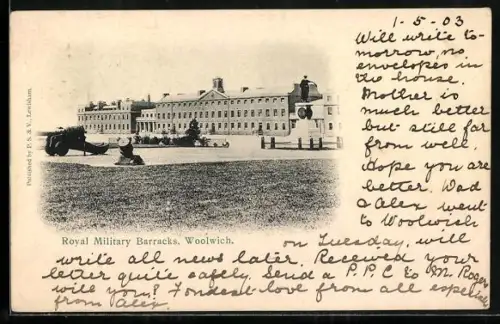 1-5-03
Will write to-
morrow, no
envelopes in
the house.
Mother is
much better
but still far
from well.
Hope you are
better. Dad
& Alex went
to Woolwich
on Tuesday, will
write all news later. Received your
letter quite safely. Send a P.P.C to M. Rogers
will you? Fondest love from all especially
from Alex.
Royal Military Barracks, Woolwich.
Lewisham.